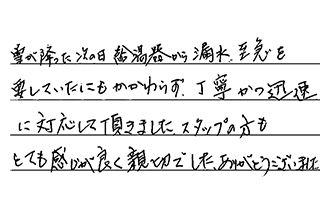 雪が降った次の日給湯器から漏水、至急を
要していたにもかかわらず、丁寧かつ迅速
に対応して頂きました スタップの方も
とても感じが良く親切でした。ありがとうございました